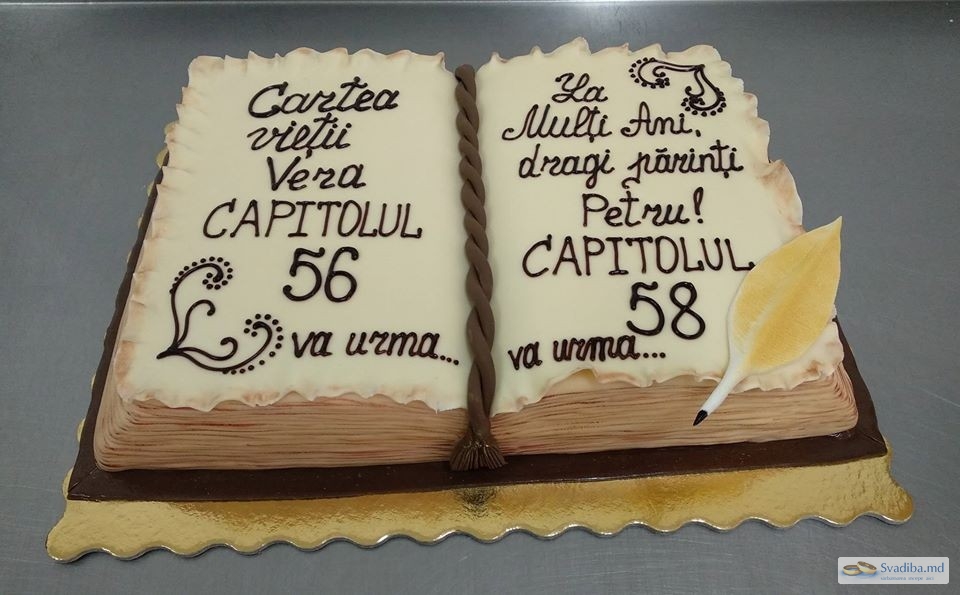 Cartea
vieții
Vera
CAPITOLUL
56
va urma...
La
Mulți Ani,
dragi părinți
Petru!
CAPITOLUL
58
va urma...
Svadiba.md